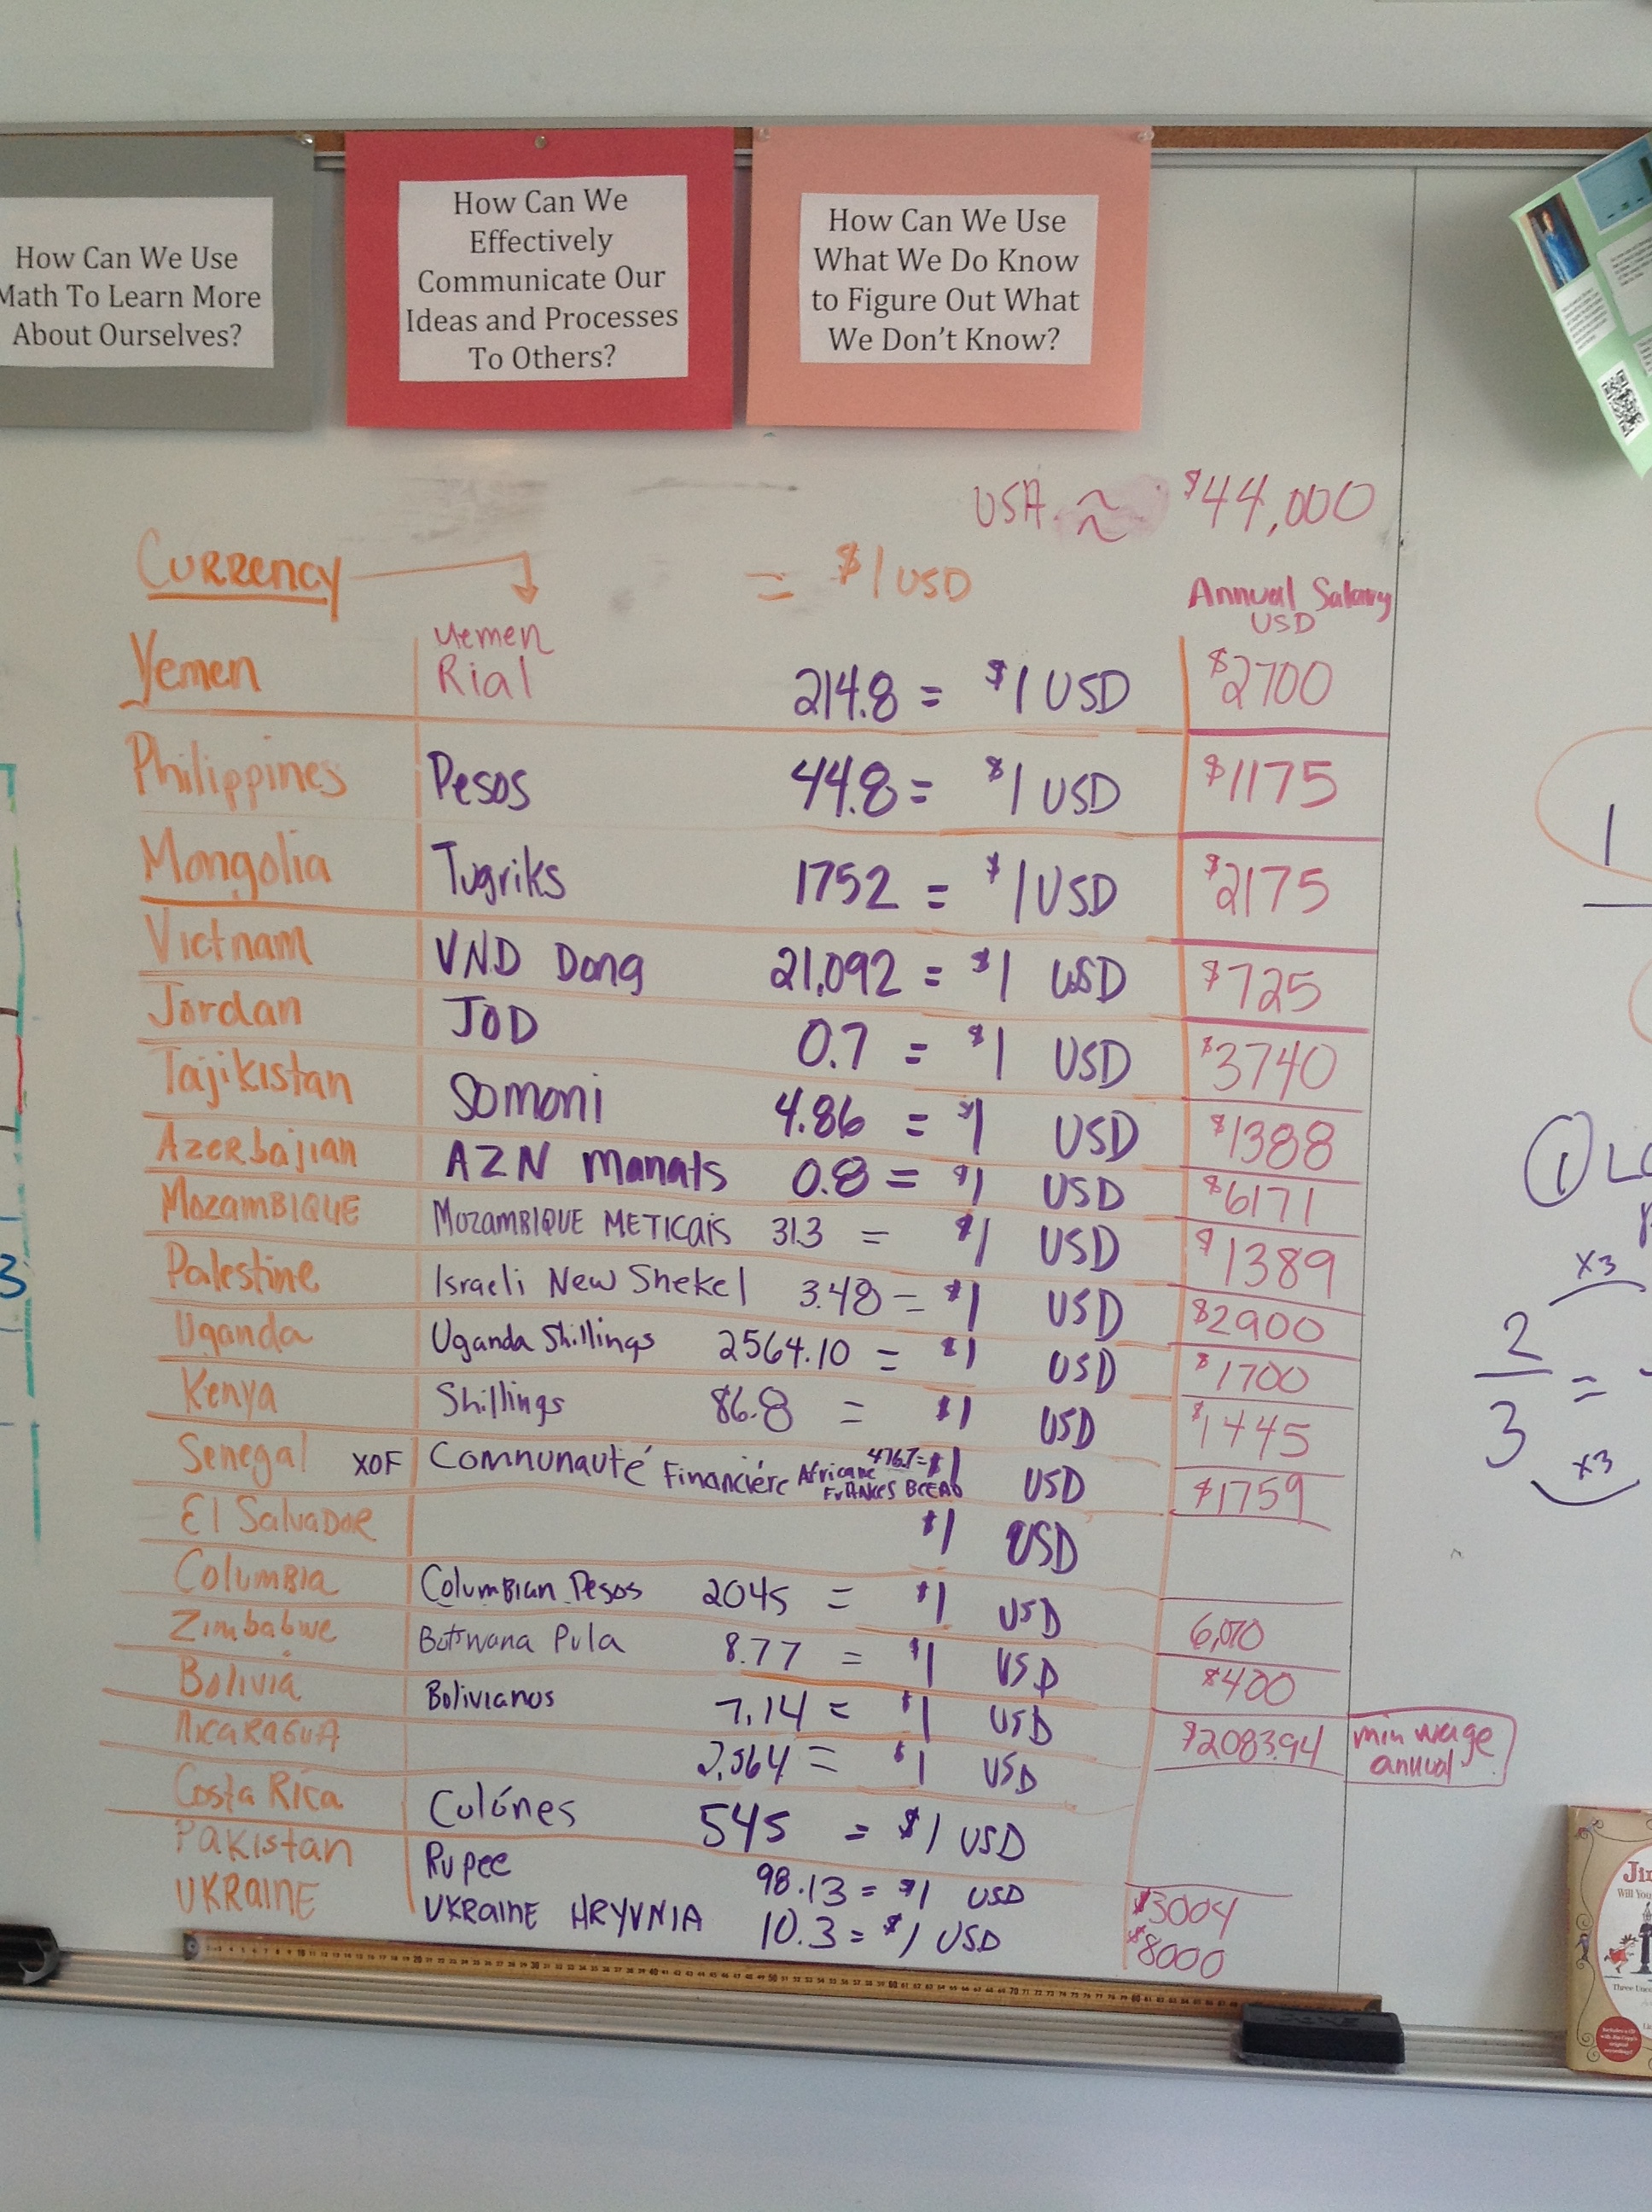 How Can We Use
Math To Learn More
About Ourselves?
How Can We
Effectively
Communicate Our
Ideas and Processes
To Others?
How Can We Use
What We Do Know
to Figure Out What
We Don't Know?
USA ≈ $44,000
Currency = $1 USD
Annual Salary
USD
Yemen Yemen Rial 214.8 = $1 USD $2700
Philippines Pesos 44.8 = $1 USD $1175
Mongolia Tugriks 1752 = $1 USD $2175
Vietnam VND Dong 21,092 = $1 USD $725
Jordan JOD 0.7 = $1 USD $3740
Tajikistan Somoni 4.86 = $1 USD $1388
Azerbajian AZN Manats 0.8 = $1 USD $6171
MOZAMBIQUE MOZAMBIQUE METICAIS 31.3 = $1 USD $1389
Palestine Israeli New Shekel 3.48 = $1 USD $2900
Uganda Uganda Shillings 2564.10 = $1 USD $1700
Kenya Shillings 86.8 = $1 USD $1445
Senegal XOF Communauté Financiére Africane FRANKES BCEAO 476.7 = $1 USD $1759
El Salvador $1 USD
Columbia Columbian Pesos 2045 = $1 USD
Zimbabwe Botswana Pula 8.77 = $1 USD $400
Bolivia Bolivianos 7.14 = $1 USD $2083.94 min wage annual
Nicaragua = $1 USD
Costa Rica Colónes 545 = $1 USD
Pakistan Rupee 98.13 = $1 USD $3004
UKRAINE UKRAINE HRYVNIA 10.3 = $1 USD $8000
1
① L
x3
2
3
=
x3
3
Three